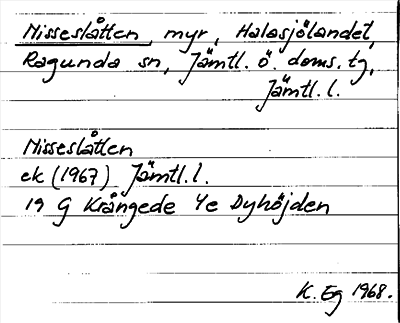 Nisseslåtten, myr, Halasjölandet,
Ragunda sn, Jämtl. ö. doms. tg,
Jämtl. l.
Nisseslåtten
ek (1967) Jämtl. l.
19 G Krångede 4e Dyhöjden
K. Eg 1968.